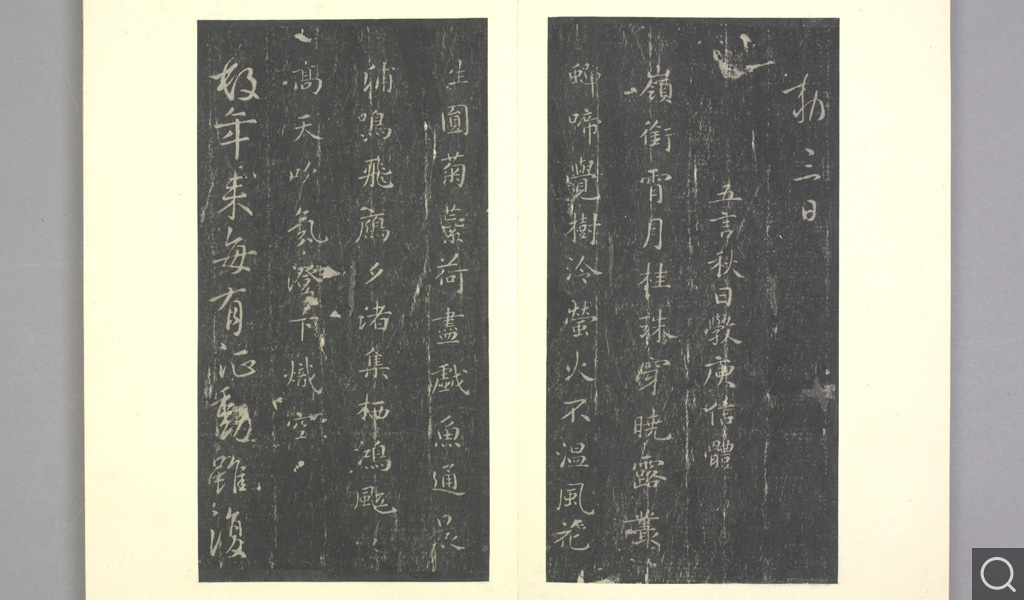 勅 三日
五言秋日斆庾信體
嶺銜霄月桂珠穿曉露叢
蟬啼覺樹冷螢火不温風花
生圓菊蘂荷盡戯魚通晨
浦鳴飛鴈夕渚集栖鴻颯々
高天吹氛澄下熾空
年来每有動雖復